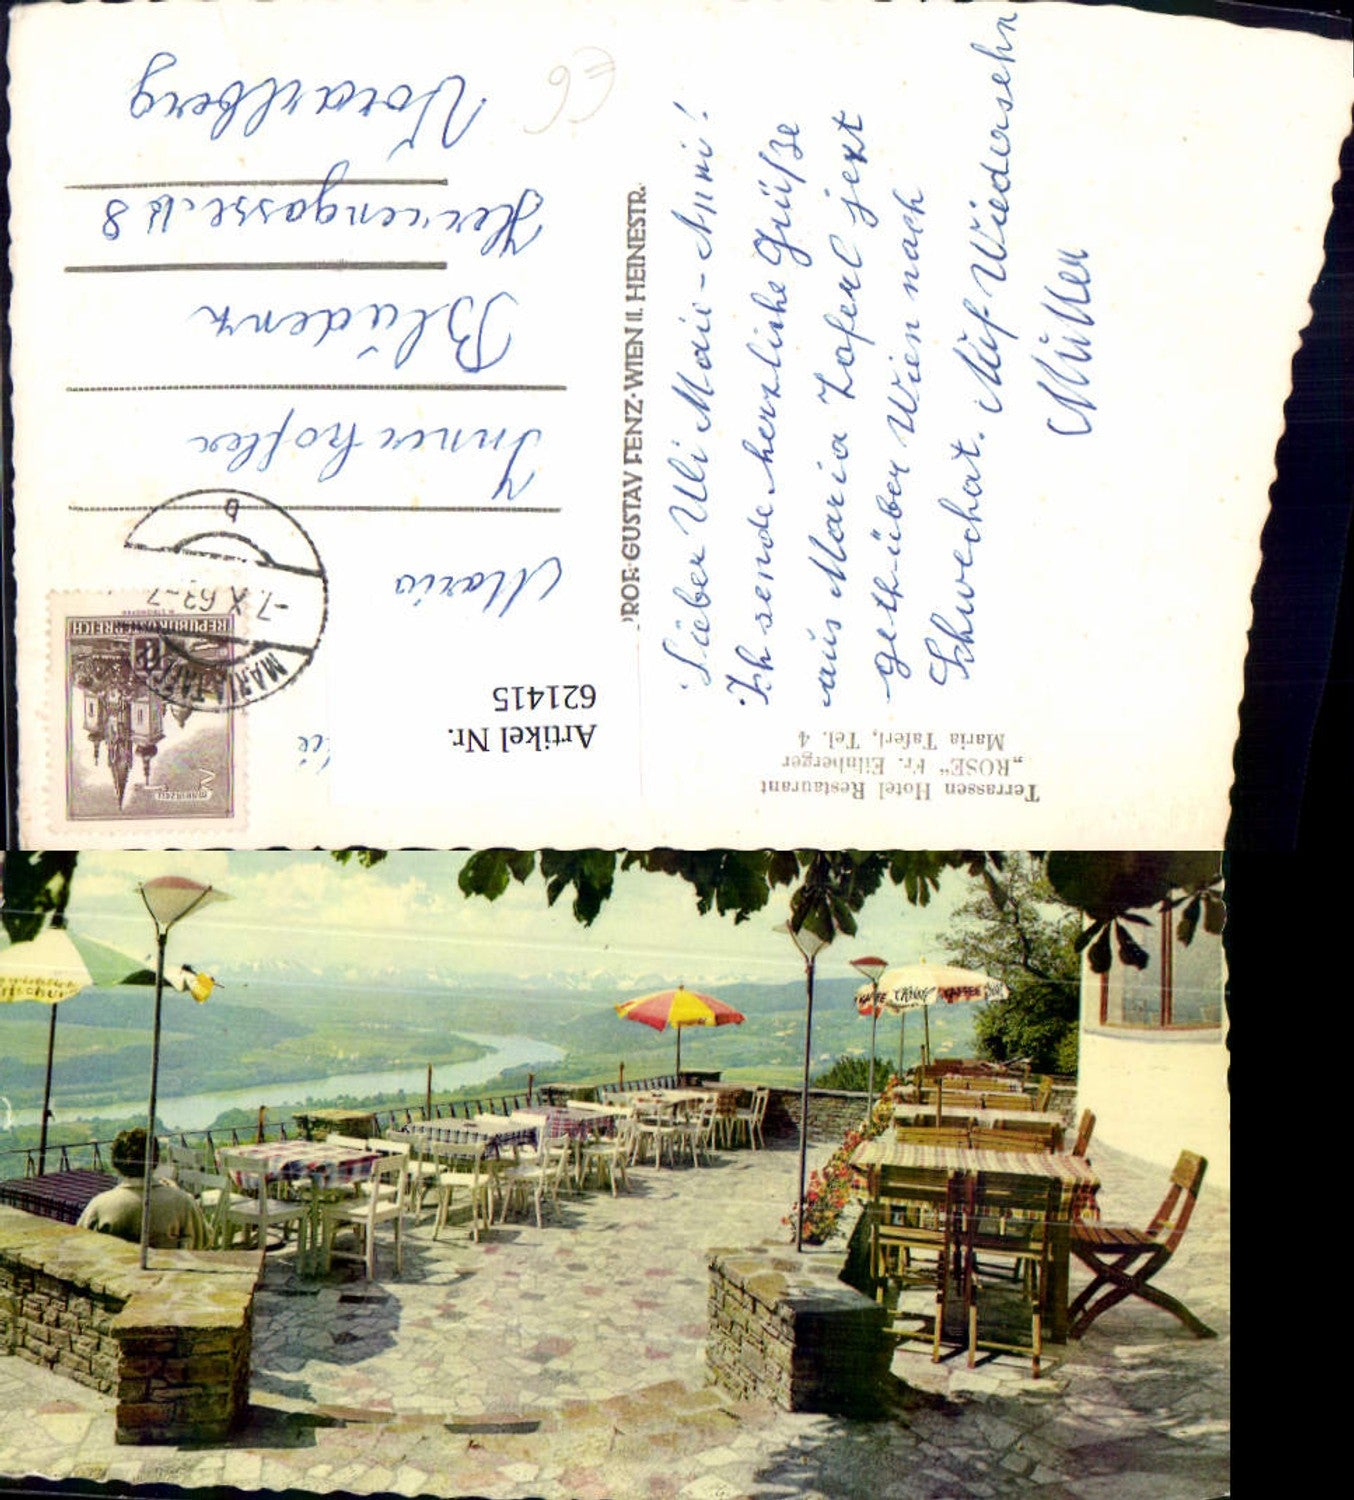 Terrassen Hotel Restaurant
„ROSE“ Fr. Eilnberger
Maria Taferl, Tel. 4
Lieber Uli Marie-Anni!
Ich sende herzliche Grüße
aus Maria Taferl jetzt
geth über Wien nach
Schwechat. Auf Wiedersehn
PROF. GUSTAV FENZ·WIEN II. HEINESTR.
Artikel Nr.
621415
REPUBLIK ÖSTERREICH
MARIAZELL
MARIA TAFERL
-7. X. 63-7
b
Maria
Innerhofer
Bludenz
Herrengasse. N 8
Vorarlberg
€6
KAFFEE